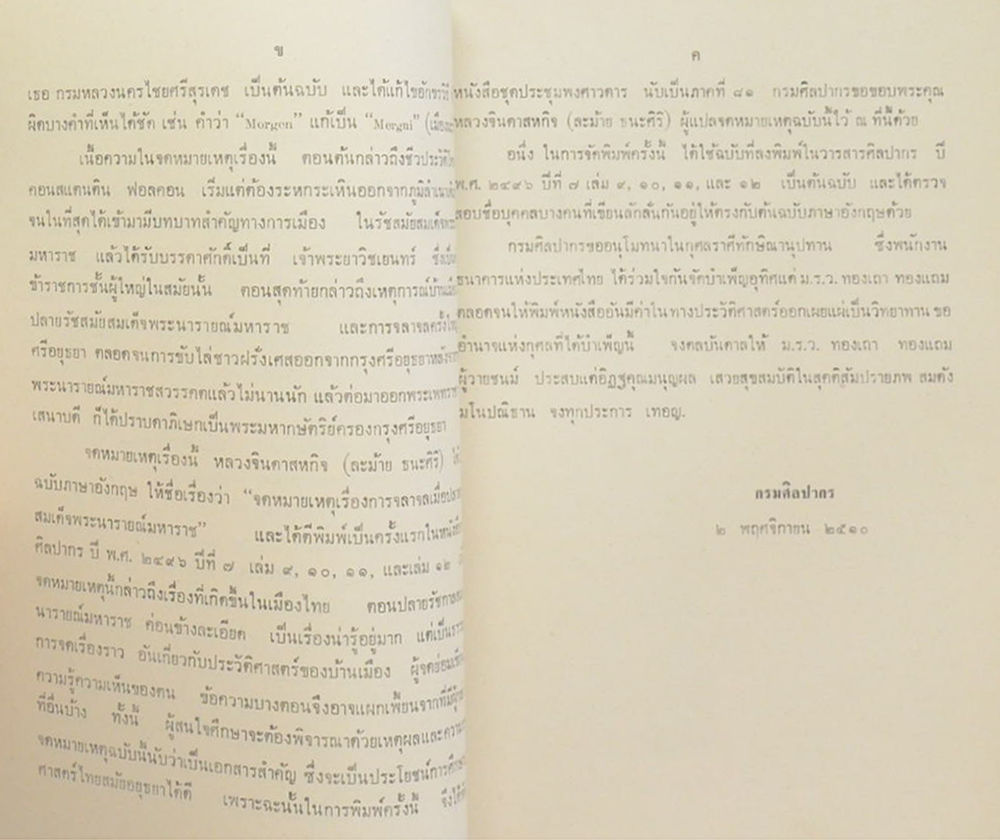 ข
เธอ กรมหลวงนครไชยศรีสุรเดช เป็นต้นฉบับ และได้แก้ไขอักขรวิธี
ผิดบางคำที่เห็นได้ชัด เช่น คำว่า “Morgen” แก้เป็น “Mergui” (เมือง
เนื้อความในจดหมายเหตุเรื่องนี้ ตอนต้นกล่าวถึงชีวประวัติ
คอนสแตนติน ฟอลคอน เริ่มแต่ต้องระหกระเหินออกจากภูมิลำเนา
จนในที่สุดได้เข้ามามีบทบาทสำคัญทางการเมือง ในรัชสมัยสมเด็จ
มหาราช แล้วได้รับบรรดาศักดิ์เป็นที่ เจ้าพระยาวิชเยนทร์ ซึ่งเป็น
ข้าราชการชั้นผู้ใหญ่ในสมัยนั้น ตอนสุดท้ายกล่าวถึงเหตุการณ์บ้านเมือง
ปลายรัชสมัยสมเด็จพระนารายณ์มหาราช และการจลาจลครั้งใหญ่
ศรีอยุธยา ตลอดจนการขับไล่ชาวฝรั่งเศสออกจากกรุงศรีอยุธยาหลังจาก
พระนารายณ์มหาราชสวรรคตแล้วไม่นานนัก แล้วต่อมาออกพระเพทราชา
เสนาบดี ก็ได้ปราบดาภิเษกเป็นพระมหากษัตริย์ครองกรุงศรีอยุธยา
จดหมายเหตุเรื่องนี้ หลวงจินดาสหกิจ (ละม้าย ธนะศิริ)
ฉบับภาษาอังกฤษ ให้ชื่อเรื่องว่า “จดหมายเหตุเรื่องการจลาจลเมื่อปลาย
สมเด็จพระนารายณ์มหาราช” และได้ตีพิมพ์เป็นครั้งแรกในหนังสือ
ศิลปากร ปี พ.ศ. ๒๔๙๖ ปีที่ ๗ เล่ม ๙, ๑๐, ๑๑, และเล่ม ๑๒
จดหมายเหตุนี้กล่าวถึงเรื่องที่เกิดขึ้นในเมืองไทย ตอนปลายรัชกาล
นารายณ์มหาราช ค่อนข้างละเอียด เป็นเรื่องน่ารู้อยู่มาก แต่เป็นธรรม
การจดเรื่องราว อันเกี่ยวกับประวัติศาสตร์ของบ้านเมือง ผู้จดย่อม
ความรู้ความเห็นของตน ข้อความบางตอนจึงอาจแผกเพี้ยนจากที่มี
ที่อื่นบ้าง ทั้งนี้ ผู้สนใจศึกษาจะต้องพิจารณาด้วยเหตุผลและความ
จดหมายเหตุฉบับนี้นับว่าเป็นเอกสารสำคัญ ซึ่งจะเป็นประโยชน์การศึกษา
ศาสตร์ไทยสมัยอยุธยาได้ดี เพราะฉะนั้นในการพิมพ์ครั้งนี้ จึงได้
ค
หนังสือชุดประชุมพงศาวดาร นับเป็นภาคที่ ๘๑ กรมศิลปากรขอขอบพระคุณ
หลวงจินดาสหกิจ (ละม้าย ธนะศิริ) ผู้แปลจดหมายเหตุฉบับนี้ไว้ ณ ที่นี้ด้วย
อนึ่ง ในการจัดพิมพ์ครั้งนี้ ได้ใช้ฉบับที่ลงพิมพ์ในวารสารศิลปากร ปี
พ.ศ. ๒๔๙๖ ปีที่ ๗ เล่ม ๙, ๑๐, ๑๑, และ ๑๒ เป็นต้นฉบับ และได้ตรวจ
สอบชื่อบุคคลบางคนที่เขียนลักลั่นกันอยู่ให้ตรงกับต้นฉบับภาษาอังกฤษด้วย
กรมศิลปากรขออนุโมทนาในกุศลราศีทักษิณานุปทาน ซึ่งพนักงาน
ธนาคารแห่งประเทศไทย ได้ร่วมใจกันจัดบำเพ็ญอุทิศแด่ ม.ร.ว. ทองเถา ทองแถม
ตลอดจนให้พิมพ์หนังสืออันมีค่าในทางประวัติศาสตร์ออกเผยแผ่เป็นวิทยาทาน ขอ
อำนาจแห่งกุศลที่ได้บำเพ็ญนี้ จงดลบันดาลให้ ม.ร.ว. ทองเถา ทองแถม
ผู้วายชนม์ ประสบแต่อิฏฐคุณมนุญผล เสวยสุขสมบัติในสุคติสัมปรายภพ สมดัง
มโนปณิธาน จงทุกประการ เทอญ.
กรมศิลปากร
๒ พฤศจิกายน ๒๕๑๐